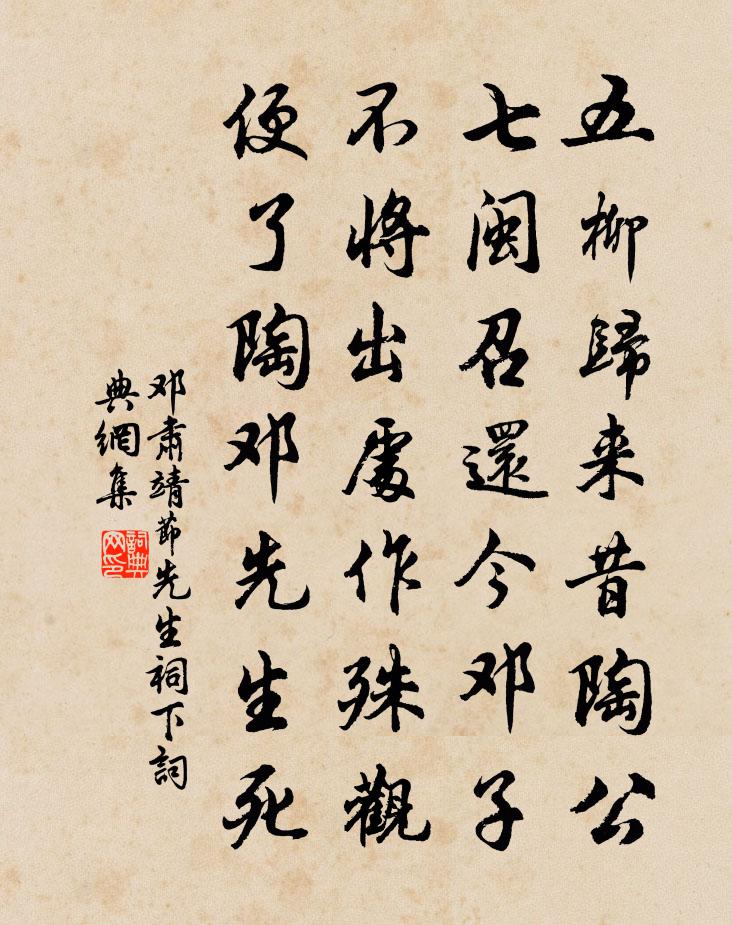 五柳歸来昔陶公
七閩召還今邓子
不將出處作殊觀
便了陶邓先生死
邓肅靖節先生祠下詞
典網集
詞典
网印